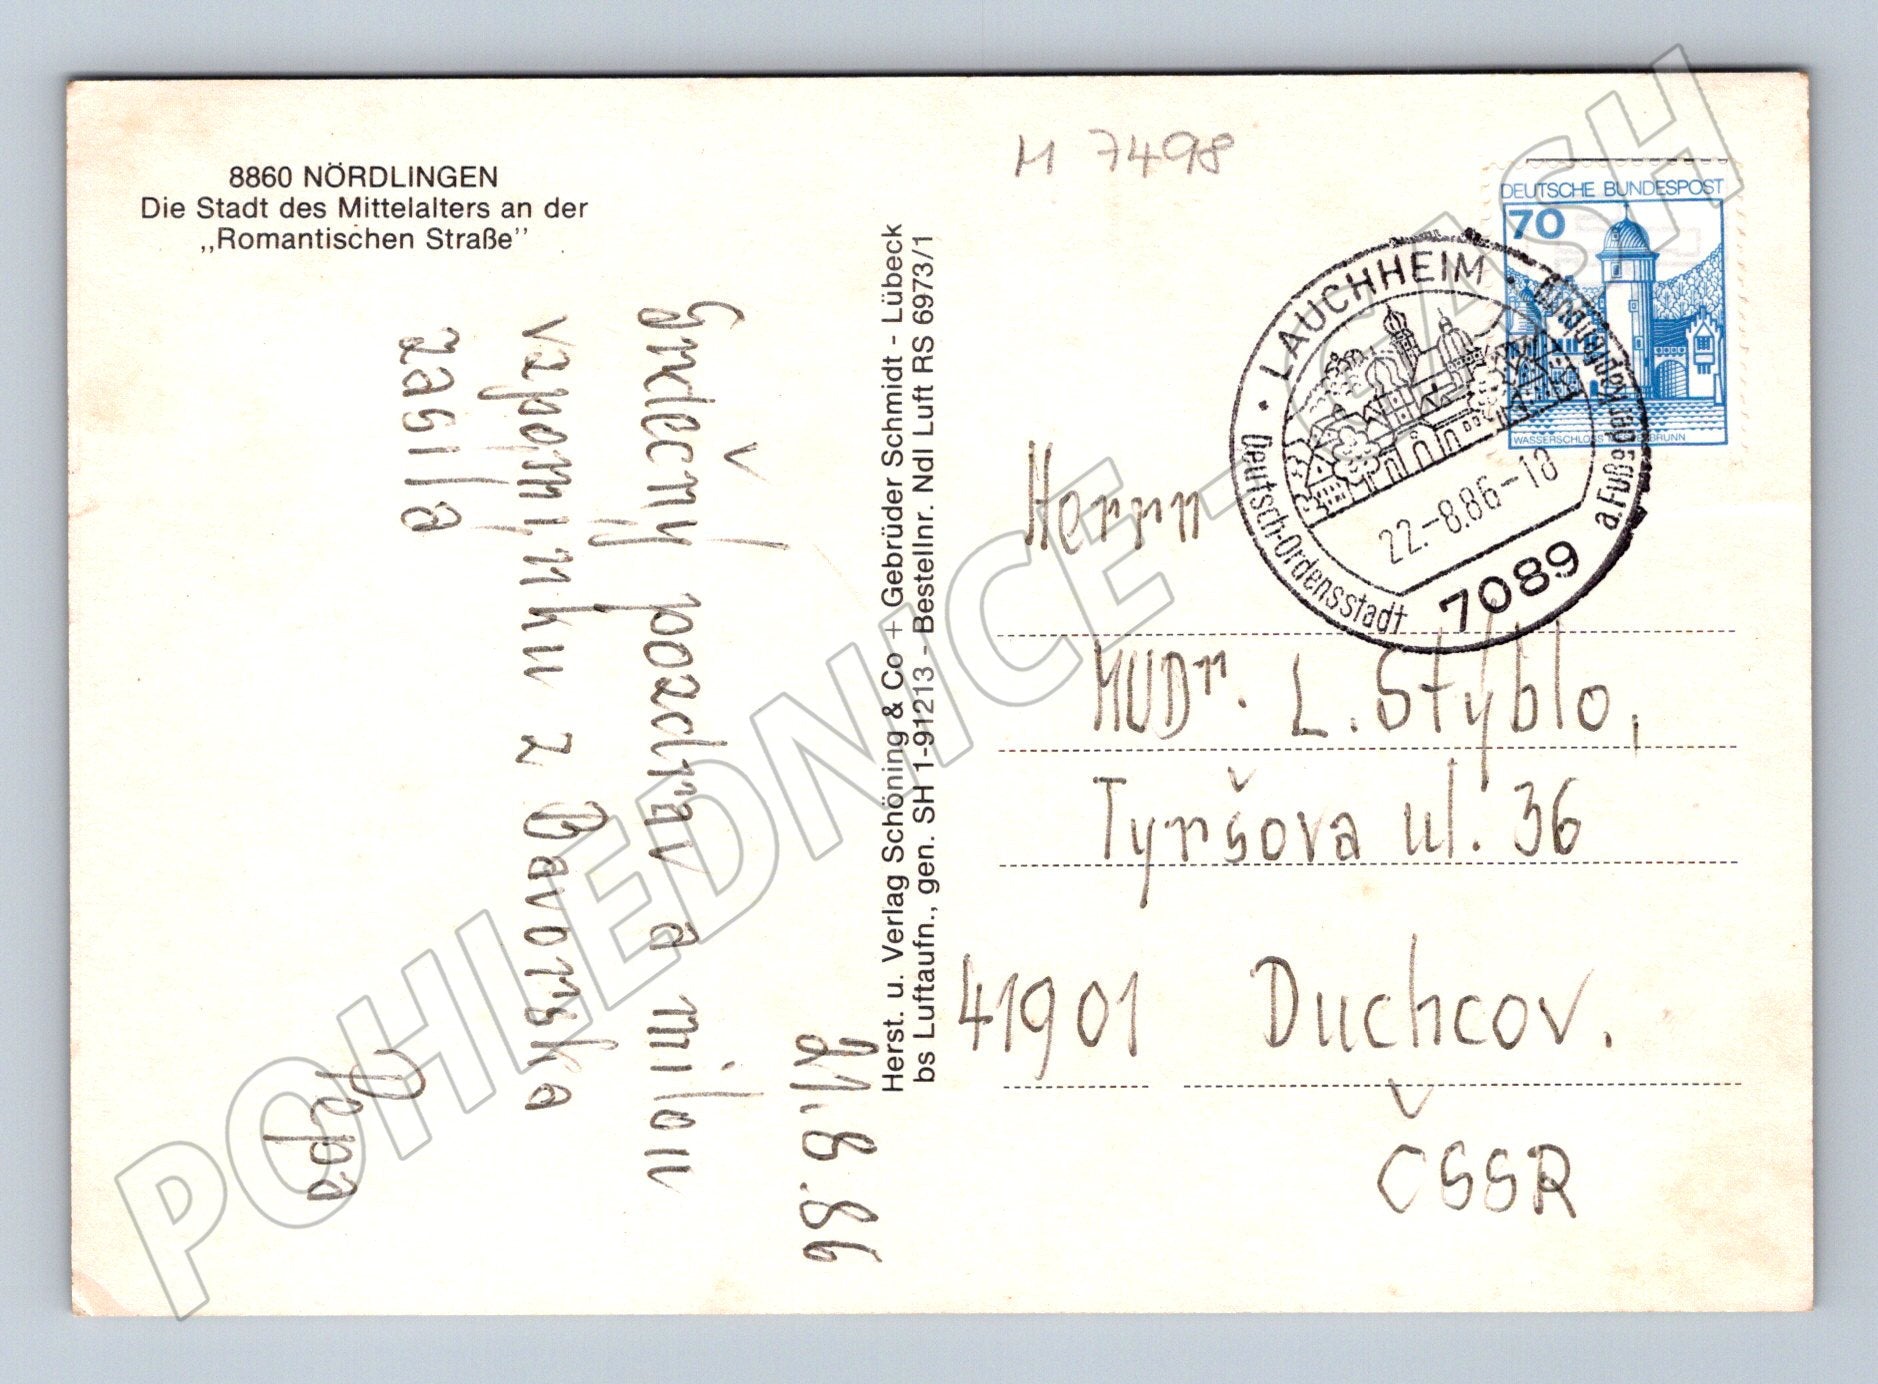 8860 NÖRDLINGEN
Die Stadt des Mittelalters an der
„Romantischen Straße"
21.8.86
Srdečný pozdrav a milou
vzpomínku z Bavorska
zasílá
Pepa
Herst. u. Verlag Schöning & Co + Gebrüder Schmidt - Lübeck
bs Luftaufn., gen. SH 1-91213 - Bestellnr. Ndl Luft RS 6973/1
M 7498
DEUTSCHE BUNDESPOST
70
WASSERSCHLOSS MESPELBRUNN
LAUCHHEIM
Deutsch-Ordensstadt
a. Fuße der Kapfenburg
22.-8.86-18
7089
Herrn
MUDr. L. Stýblo,
Tyršova ul. 36
41901 Duchcov.
ČSSR
POHLEDNICE-SASH